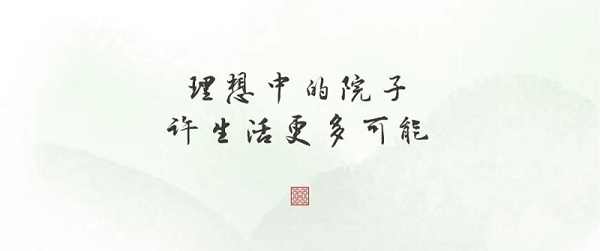 理想中的院子
许生活更多可能